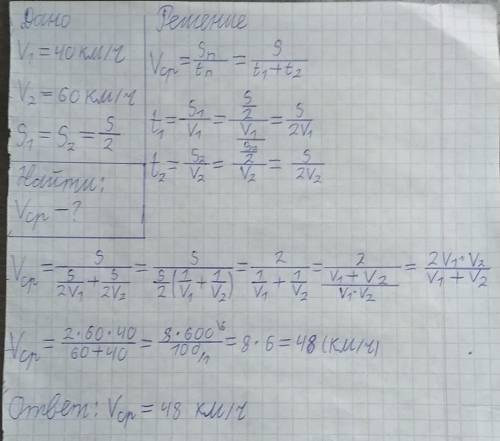 Дано
V₁ = 40 км/ч
V₂ = 60 км/ч
S₁ = S₂ = S/2
Найти:
Vср – ?
Решение
Vср = Sп/tп = S/(t₁ + t₂)
t₁ = S₁/V₁ = (S/2)/V₁ = S/2V₁
t₂ = S₂/V₂ = (S/2)/V₂ = S/2V₂
Vср = S/(S/2V₁ + S/2V₂) = S/(S/2(1/V₁ + 1/V₂)) = 2/(1/V₁ + 1/V₂) = 2/((V₁ + V₂)/(V₁·V₂)) = 2V₁·V₂/(V₁ + V₂)
Vср = 2·60·40/(60+40) = 8·600/100 = 8·6 = 48 (км/ч)
Ответ: Vср = 48 км/ч